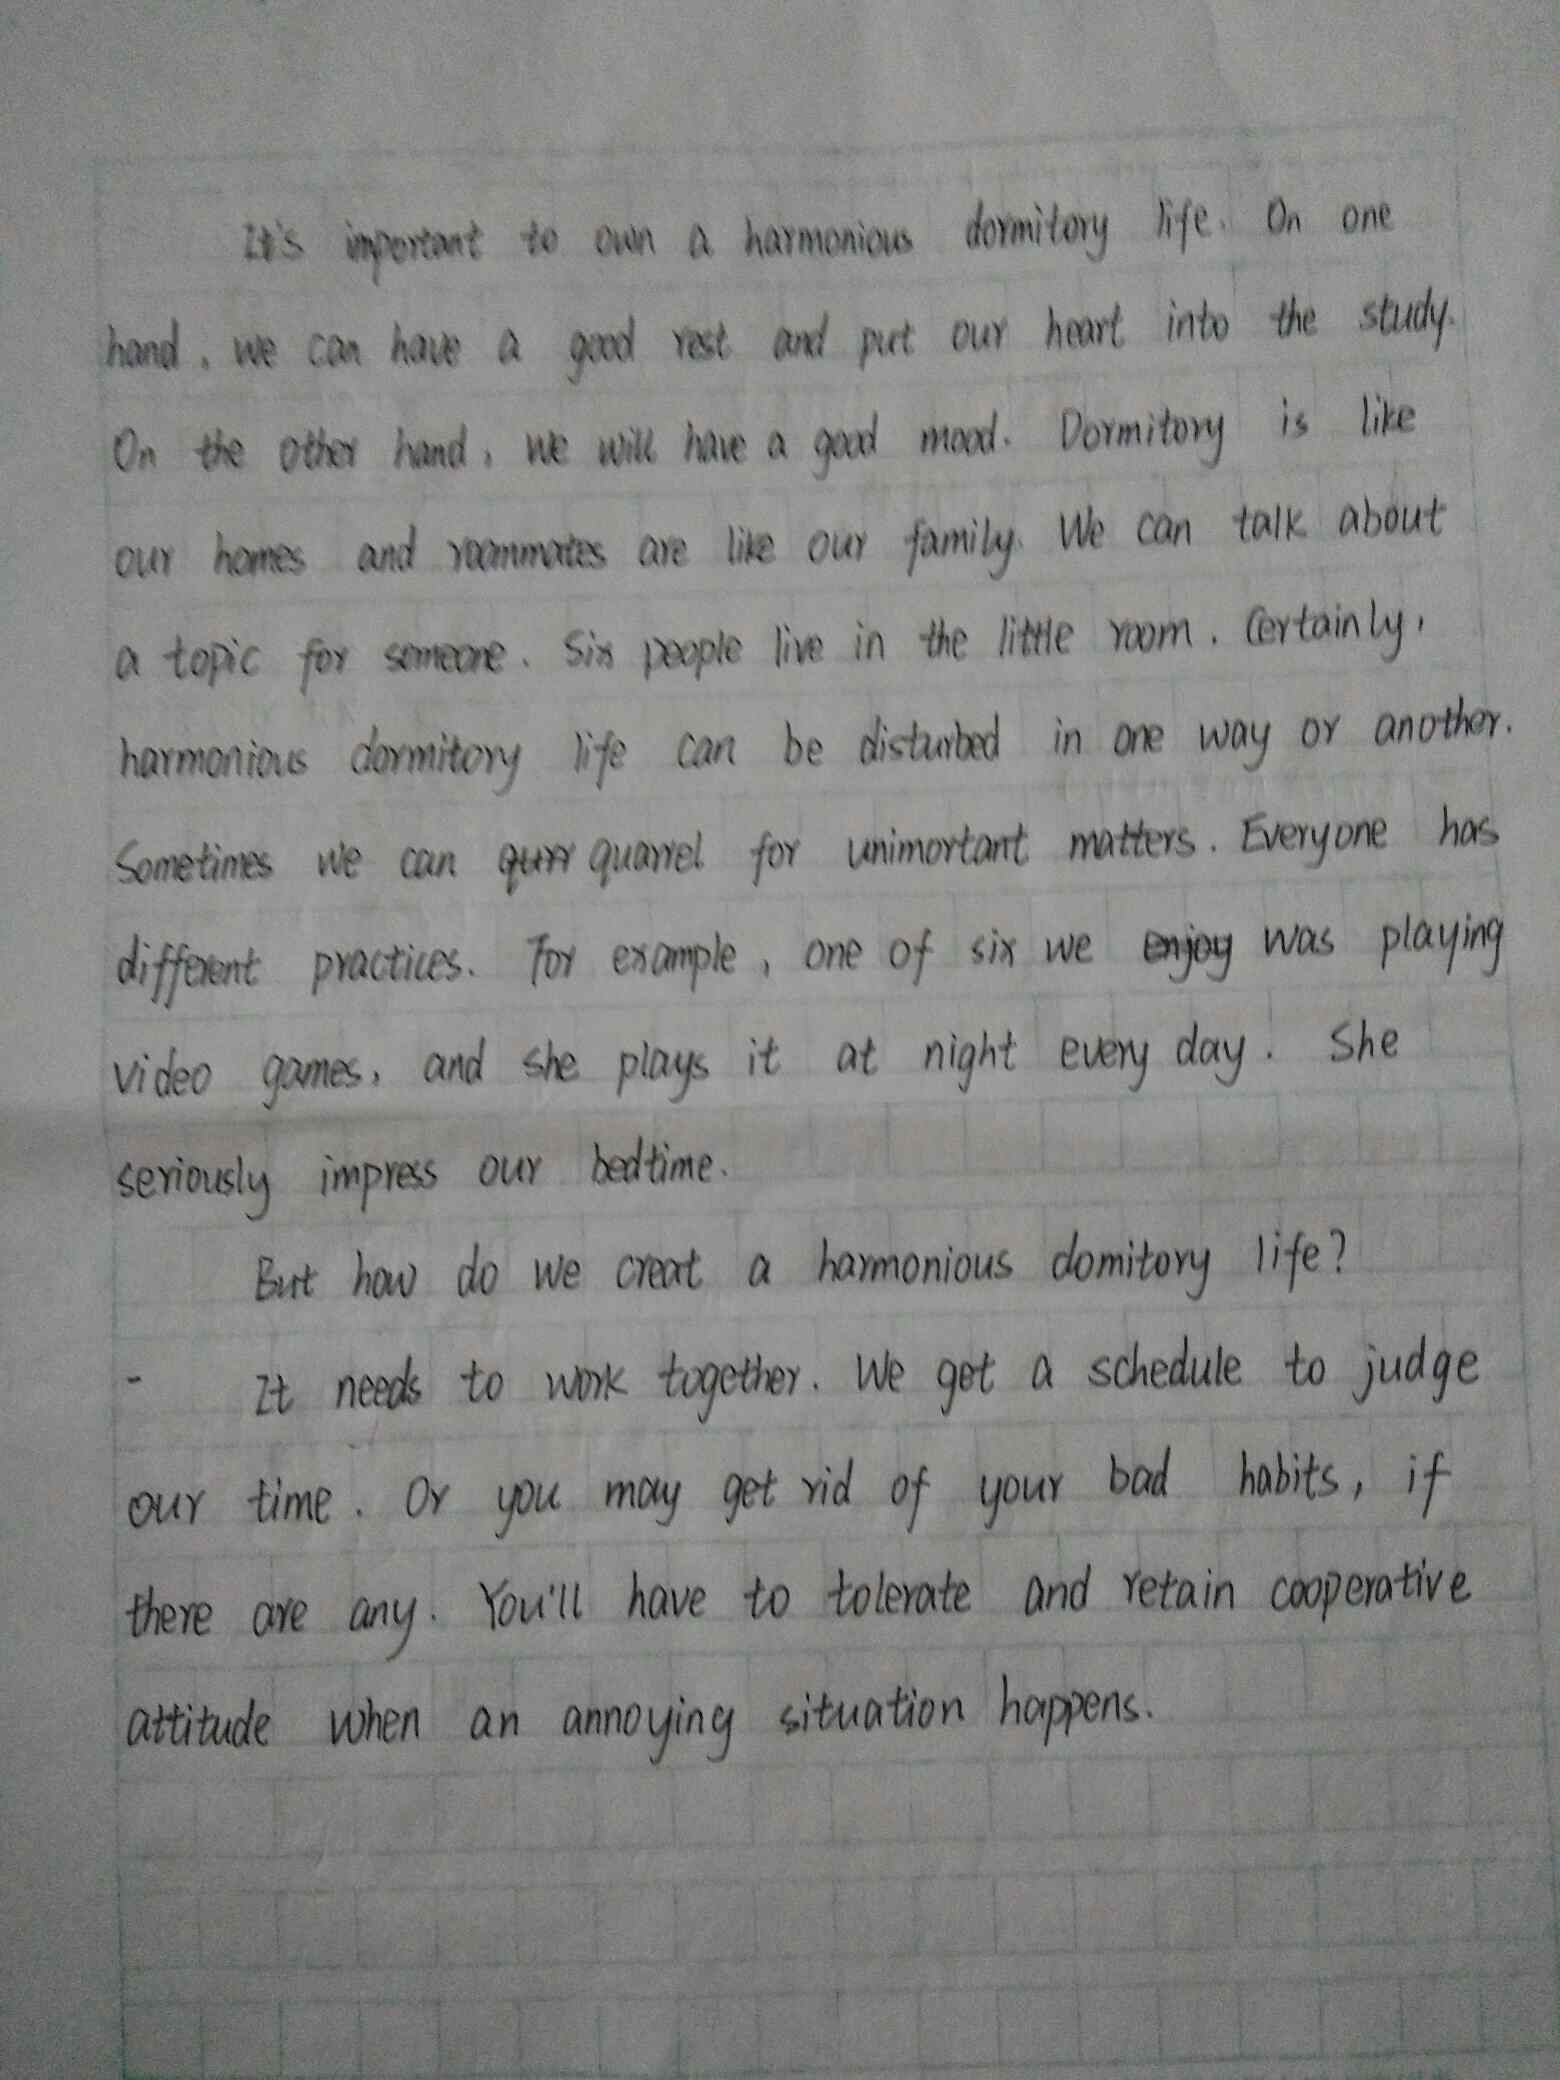 It's important to own a harmonious dormitory life. On one
hand, we can have a good rest and put our heart into the study.
On the other hand, we will have a good mood. Dormitory is like
our homes and roommates are like our family. We can talk about
a topic for someone. Six people live in the little room. Certainly,
harmonious dormitory life can be disturbed in one way or another.
Sometimes we can qurr quarrel for unimortant matters. Everyone has
different practices. For example, one of six we enjoy was playing
video games, and she plays it at night every day. She
seriously impress our bedtime.
But how do we creat a harmonious domitory life?
- It needs to work together. We get a schedule to judge
our time. Or you may get rid of your bad habits, if
there are any. You'll have to tolerate and retain cooperative
attitude when an annoying situation happens.